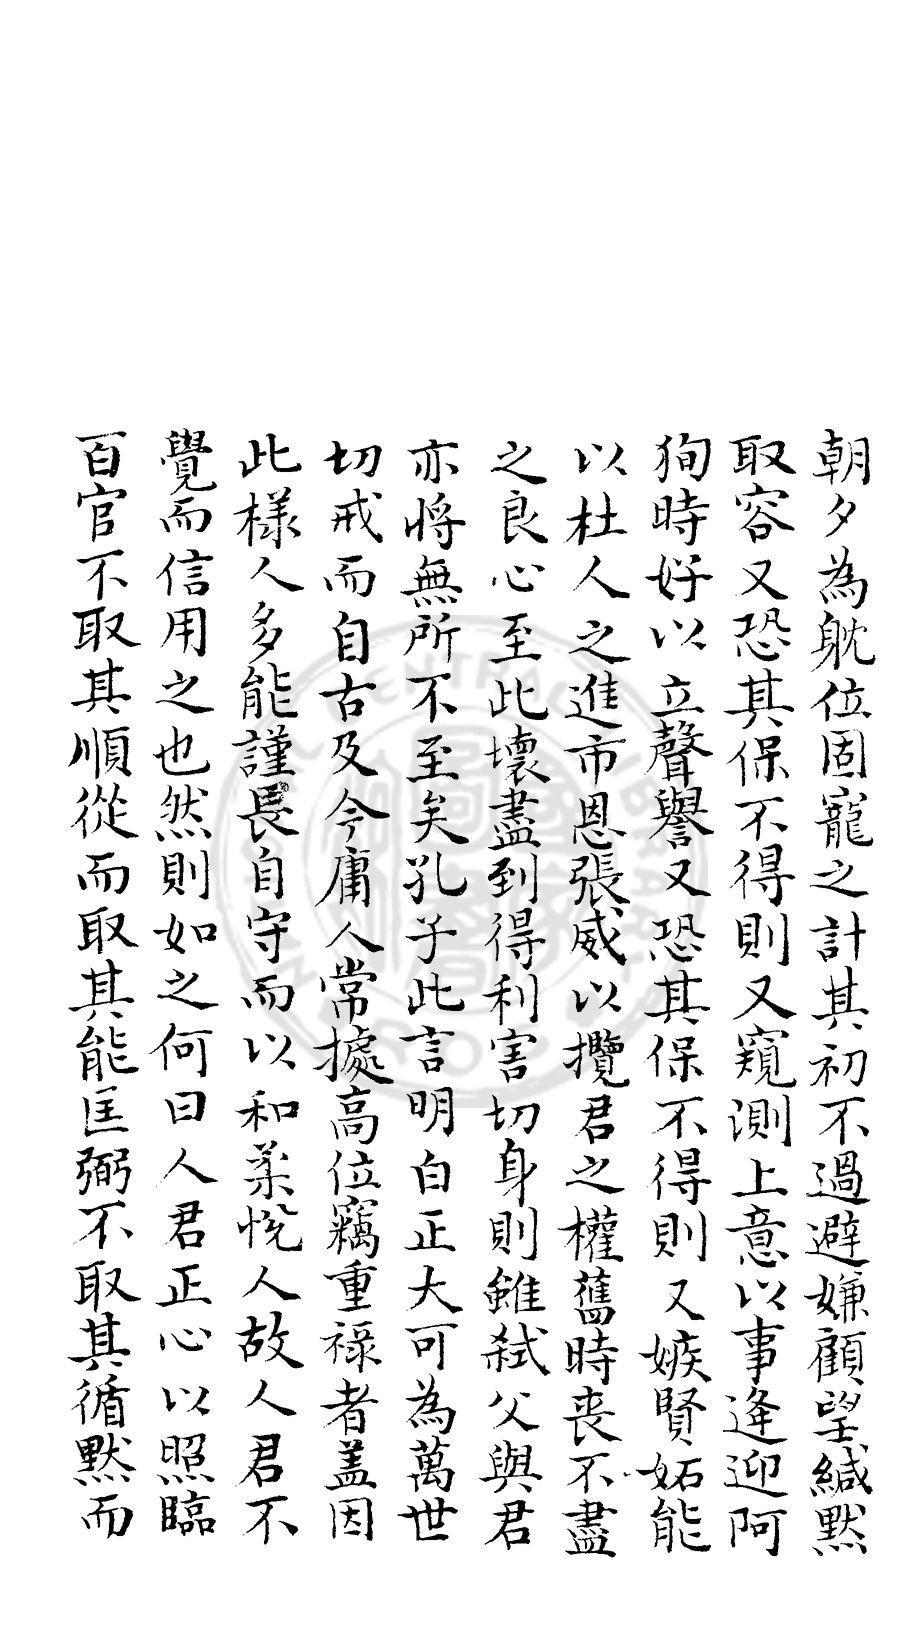 朝夕為躭位固寵之計其初不過避嫌顧望緘默
取容又恐其保不得則又窺測上意以事逢迎阿
狥時好以立聲譽又恐其保不得則又嫉賢妬能
以杜人之進市恩張威以攬君之權舊時喪不盡
之良心至此壞盡到得利害切身則雖弒父與君
亦將無所不至矣孔子此言明白正大可為萬世
切戒而自古及今庸人常據高位竊重祿者盖因
此様人多能謹畏自守而以和柔悅人故人君不
覺而信用之也然則如之何曰人君正心以照臨
百官不取其順從而取其能匡弼不取其循默而